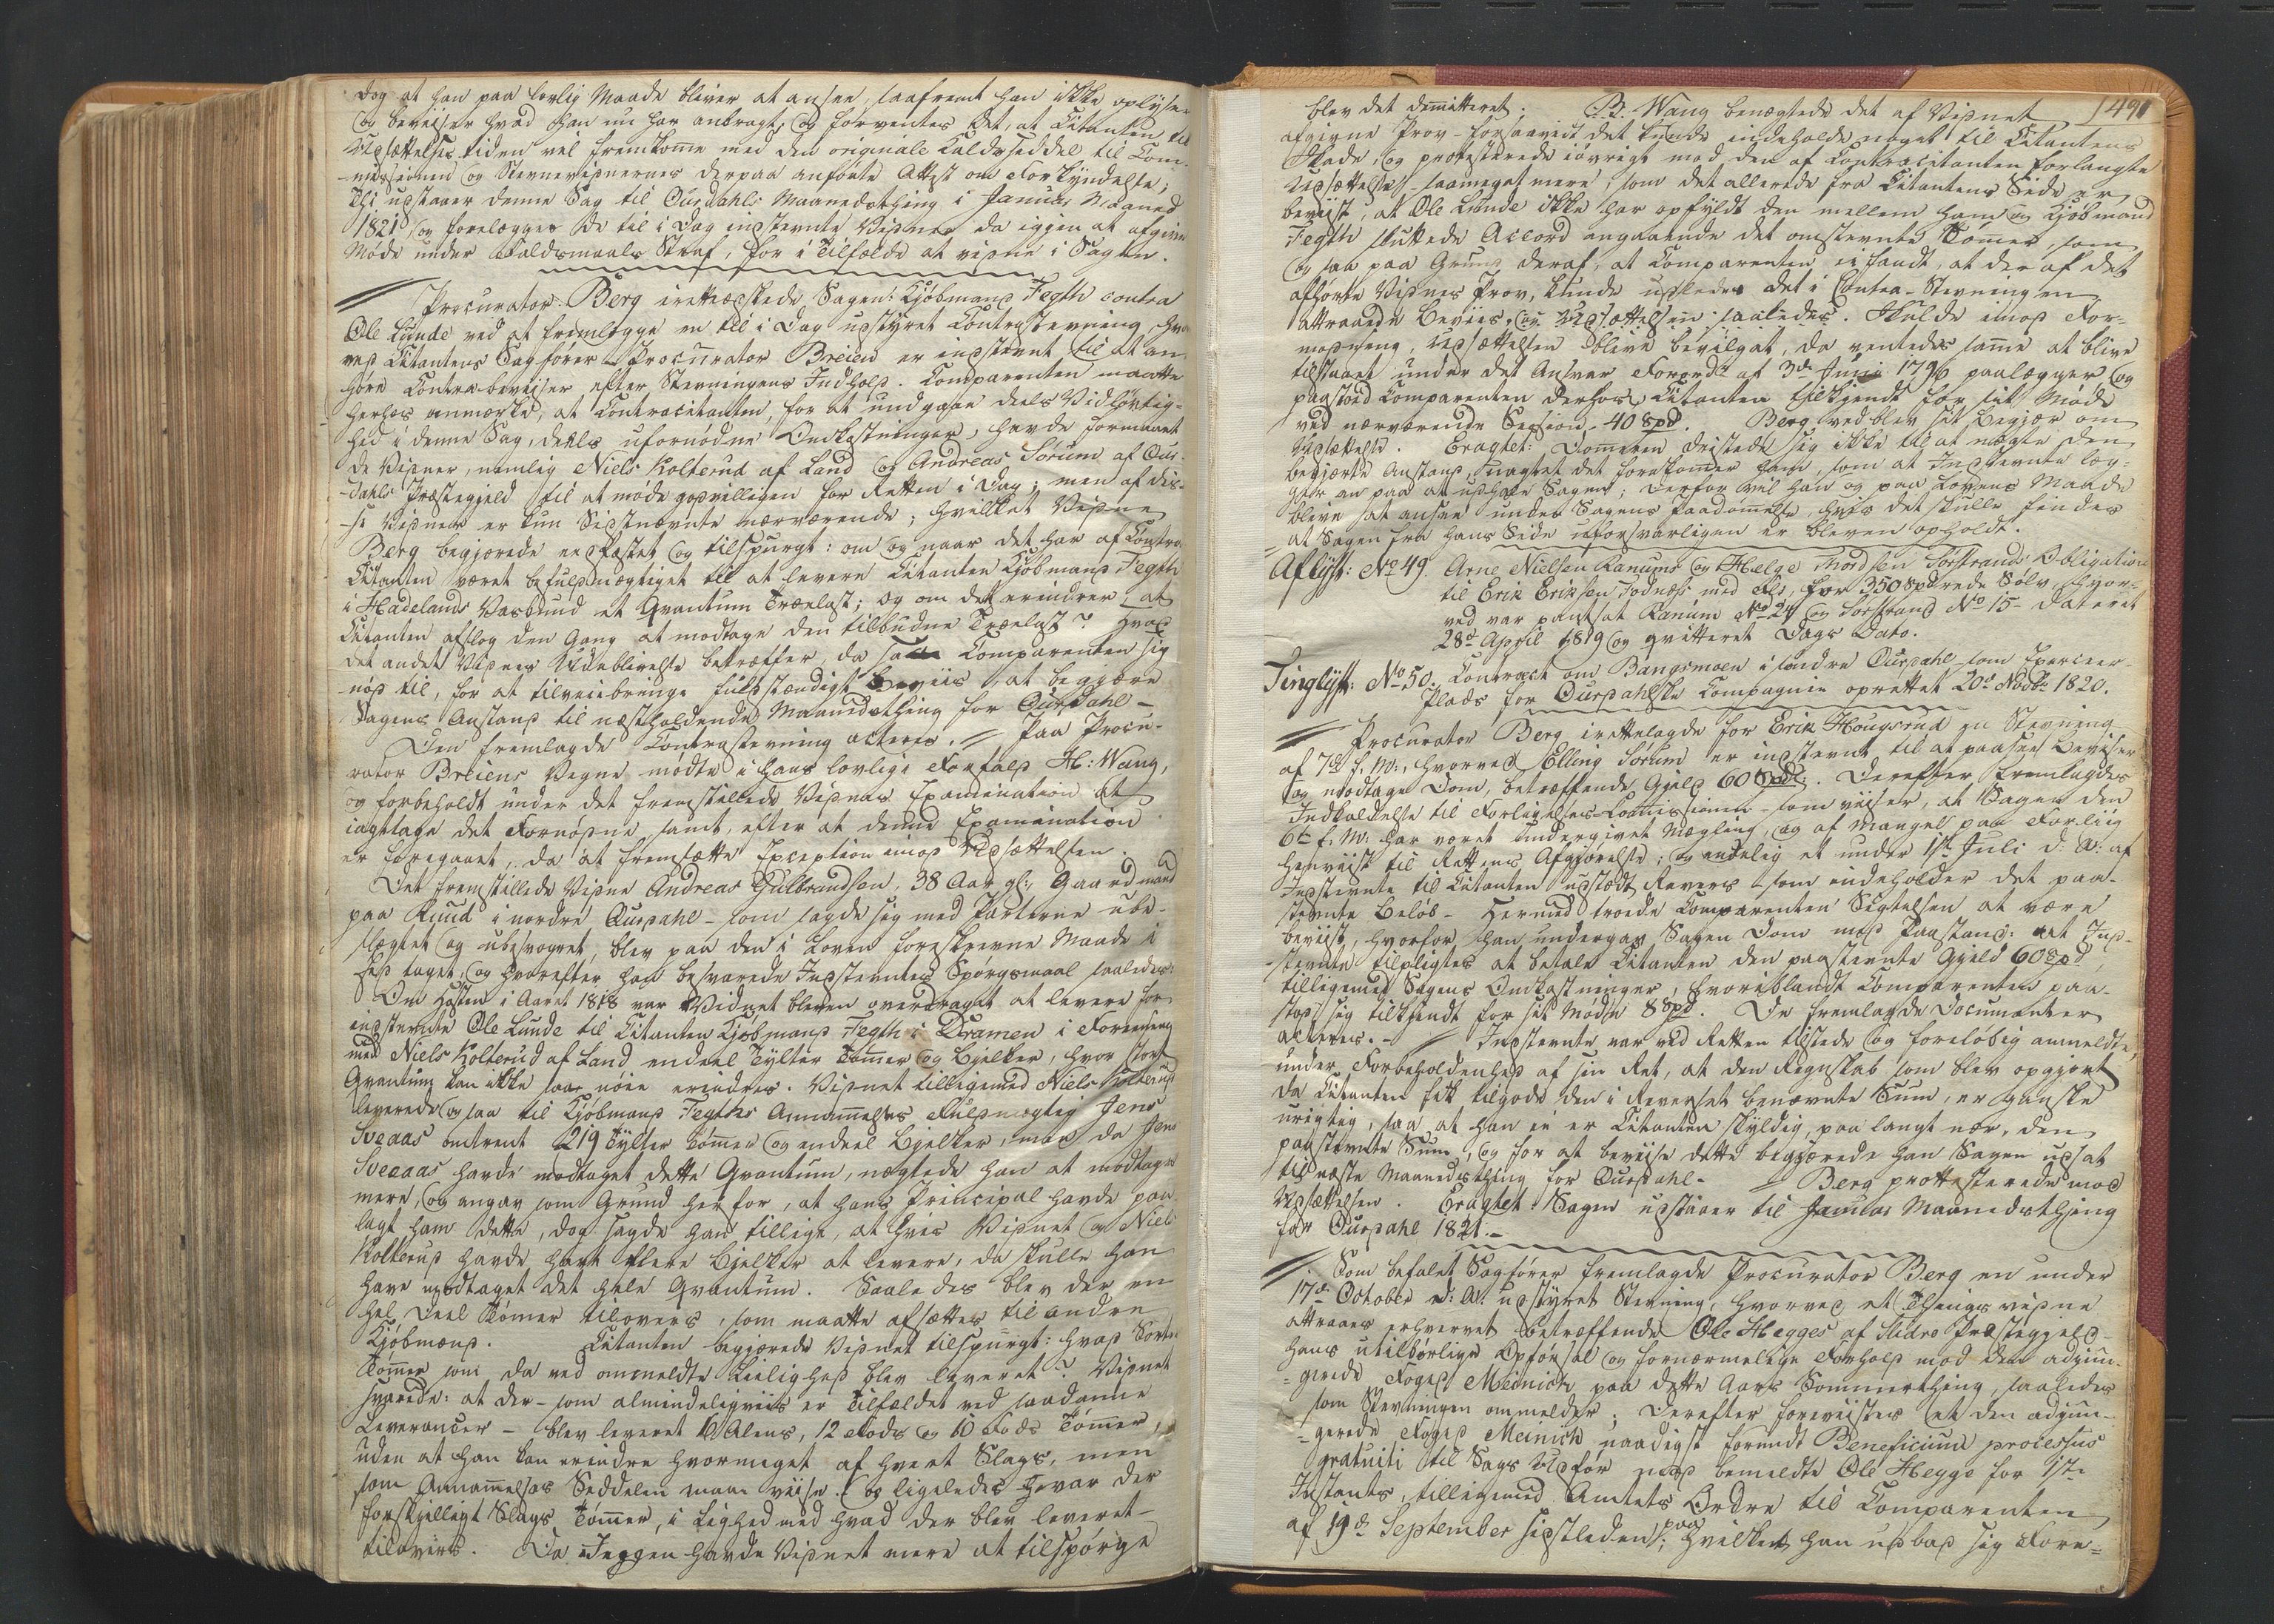 dog at han paa lovlig Maade bliver at ansee, saafremt han ikke oplyser
og beviser hvad han nu har anbragt, og forventes det, at Citanten til
Udsættelsestiden vil fremkomme med den originale Kaldsseddel til Com-
missionen og Stevnevidnernes derpaa anførte Attest om Forkyndelse;
Thi udstaaer denne Sag til Ourdahls Maanedsthing i Januar Maaned
1821 og forelægges de til i Dag indstevnte Vidner da igjen at afgive
Møde under Faldsmaals Straf, for i Tilfælde at vidne i Sagen.
Procurator Berg irettæskede Sagen: Kjøbmand Fegth contra
Ole Lunde ved at fremlægge en til i Dag udstyret Contrastevning, hvor-
ved Citantens Sagfører Procurator Breien er indstevnt til at an-
høre Contrabeviser efter Stevningens Indhold. Comparenten maatte
herhos anmærke, at Contracitanten, for at undgaae deels Vidtløftig-
hed i denne Sag, deels ufornødne Omkostninger, havde formaaet
de Vidner, nemlig Niels Kolterud af Land og Andreas Sørum af Our-
dahls Præstegjeld til at møde godvilligen for Retten i Dag; men af dis-
se Vidner er kun Sidstnævnte nærværende; hvilket Vidne
Berg begjærede eedfæstet og tilspurgt: om og naar det har af Contra
Citanten været befuldmægtiget til at levere Citanten Kjøbmand Fegth
i Hadelands Vasbund et Qvantum Trælast; og om det erindrer at
Citanten afslog den Gang at modtage den tilbudne Trælast? Hvad
det andet Vidnes Udeblivelse betræffer da saae Comparenten sig
nød til, for at tilveiebringe fuldstændigt Beviis, at begjære
Sagens Anstand til næstholdende Maanedsthing for Ourdahl –
Den fremlagde Contrastevning acteres. // Paa Procu-
rator Breiens Vegne mødte i hans lovlige Forfald H: Wang,
og forbeholdt under det fremstillede Vidnes Examination at
iagttage det Fornødne, samt, efter at denne Examination
er foregaaet, da at fremsætte Exception imod Udsættelsen.
Det fremstillede Vidne Andreas Gulbrandsen, 38 Aar gl:, Gaardmand
paa Ruud i nordre Ourdahl – som sagde sig med Parterne ube-
slægtet og ubesvogret, blev paa den i Loven foreskrevne Maade i
Eed taget, og hvorefter han besvarede Indstevntes Spørgsmaal saaledes:
Om Høsten i Aaret 1818 var Vidnet bleven overdraget at levere for
indstevnte Ole Lunde til Citanten Kjøbmand Fegth i Dramen i Forening
med Niels Kolterud af Land endeel Tylter Tømmer og Bjelker, hvor stort
Qvantum kan ikke saa nøie erindres. Vidnet tilligemed Niels Kolterud
leverede og saa til Kjøbmand Fegths Annammelses Fuldmægtig Jens
Sveaas omtrent 219 Tylter Tømmer og endeel Bjelker, men da Jens
Sveaas havde modtaget dette Qvantum, nægtede han at modtage
mere, og angav som Grund herfor, at hans Principal havde paa-
lagt ham dette, dog sagde han tillige, at hvis Vidnet og Niels
Kolterud havde havt flere Bjelker at levere, da skulle han
have modtaget det hele Qvantum. Saaledes blev der en
hel Deel Tømmer tilovers, som maatte afsættes til andre
Kjøbmænd. Citanten begjærede Vidnet tilspurgt: hvad Sorter
Tømmer som da ved ommeldte Leilighed blev leveret? Vidnet
svarede: at der – som almindeligviis er Tilfældet ved saadanne
Leverancer – blev leveret 6 Alens, 12 Fods og 10 Fods Tømmer,
uden at han kan erindre hvormeget af hvert Slags, men
som Annammelses Seddelen maae viise. og ligeledes var der
forskjelligt Slags Tømmer, i Lighed med hvad der blev leveret –
tilovers. Da Ingen havde Vidnet mere at tilspørge
149
blev det demitteret. H. Wang benægtede det af Vidnet
afgivne Prov – forsaavidt det kunde indeholde noget til Citantens
Skade, og protesterede iøvrigt mod den af Contracitanten forlangte
Udsættelse – saameget mere, som det allerede fra Citantens Side er
beviist, at Ole Lunde ikke har opfyldt den mellem ham og Kjøbmand
Fegth sluttede Accord angaaende det omstevnte Tømmer, som
og saa paa Grund deraf, at Comparenten ei fandt, at der af det
afhørte Vidnes Prov, kunde udledes det i Contra-Stevningen
attraaede Beviis, og Udsættelsen saaledes. Skulde imod For-
modning, Udsættelsen blive bevilget, da ventedes samme at blive
tilstaaet under det Ansvar Forordn: af 3de Junii 1796 paalægger, og
paastod Comparenten derhos Citanten tilkjendt for sit Møde
ved nærværende Session – 40 Spd. Berg vedblev sit Begjær om
Udsættelse. Eragtet: Dommeren dristede sig ikke til at nægte den
begjærte Anstand, uagtet det forekommer ham, som at Indstevnte læg-
ger an paa at udhale Sagen; derfor vil han og paa Lovens Maade
blive at ansee under Sagens Paadømmelse, hvis det skulle findes
at Sagen fra hans Side uforsvarligen er bleven opholdt.
Aflyst: No 49. Arne Nielsen Ranums og Helge Thordsen Sørstrands Obligation
til Erik Eriksen Fodnæs med Fl., for 350 Spd rede Sølv, hvor-
ved var pantsat Ranum No 24 og Sørstrand No 15 – dateret
28de April 1819 og qvitteret Dags Dato.
Tinglyst: No 50. Contract om Bangsmoen i søndre Ourdahl som Exerceer-
Plads for Ourdahlske Compagnie oprettet 20de Novbr 1820.
Procurator Berg irettelagde for Erik Hougsrud en Stevning
af 7de f. M., hvorved Elling Sørum er indstevnt til at paasee Beviser
og modtage Dom, betræffende Gjeld 60 Spd. Derefter fremlagdes
Indkaldelse til Forligelses-Commissionen – som viser, at Sagen den
6te f. M. har været undergivet Mægling, og af Mangel paa Forliig
henviist til Rettens Afgjørelse; og endelig et under 1ste Juli d. A. af
Indstevnte til Citanten udstædt Revers – som indeholder det paa-
stevnte Beløb – Hermed troede Comparenten Sigtelsen at være
beviist, hvorfor han undergav Sagen Dom med Paastand: at Ind-
stevnte tilpligtes at betale Citanten den paastevnte Gjeld 60 Spd
tilligemed Sagens Omkostninger, hvoriblandt Comparenten paa-
stod sig tilkjendt for sit Møde 8 Spd. De fremlagde Documenter
acteres. – // Indstevnte var ved Retten tilstede og foreløbig anmeldte,
under Forbeholdenhed af sin Ret, at den Regnskab som blev opgjort
da Citanten fik tilgode den i Reverset benævnte Sum, er ganske
urigtig, saa at han ei er Citanten skyldig, paa langt nær, den
paastevnte Sum, og for at bevise dette begjærede han Sagen udsat
til næste Maanedsthing for Ourdahl. – // Berg prottesterede mod
Udsættelsen. Eragtet: Sagen udstaaer til Januar Maanedsthing
for Ourdahl 1821. –
Som befalet Sagfører fremlagde Procurator Berg en under
17de Octobr d: A: udstyret Stevning, hvorved et Thingsvidne
attraaes erhvervet betræffende Ole Hegges af Slidre Præstegjeld –
hans utilbørlige Opførsel og fornærmelige Forhold mod den adjun-
gerede Foged Meinich paa dette Aars Sommerthing, saaledes
som Stevningen ommelder. Derefter foreviistes et den adjun-
gerede Foged Meinich naadigst forundt Beneficium processus
gratuiti til Sags Udfør mod bemeldte Ole Hegge for 1ste
Instants, tilligemed Amtets Ordre til Comparenten
af 19de September sidstleden; paa hvilket han udbad sig Fore-